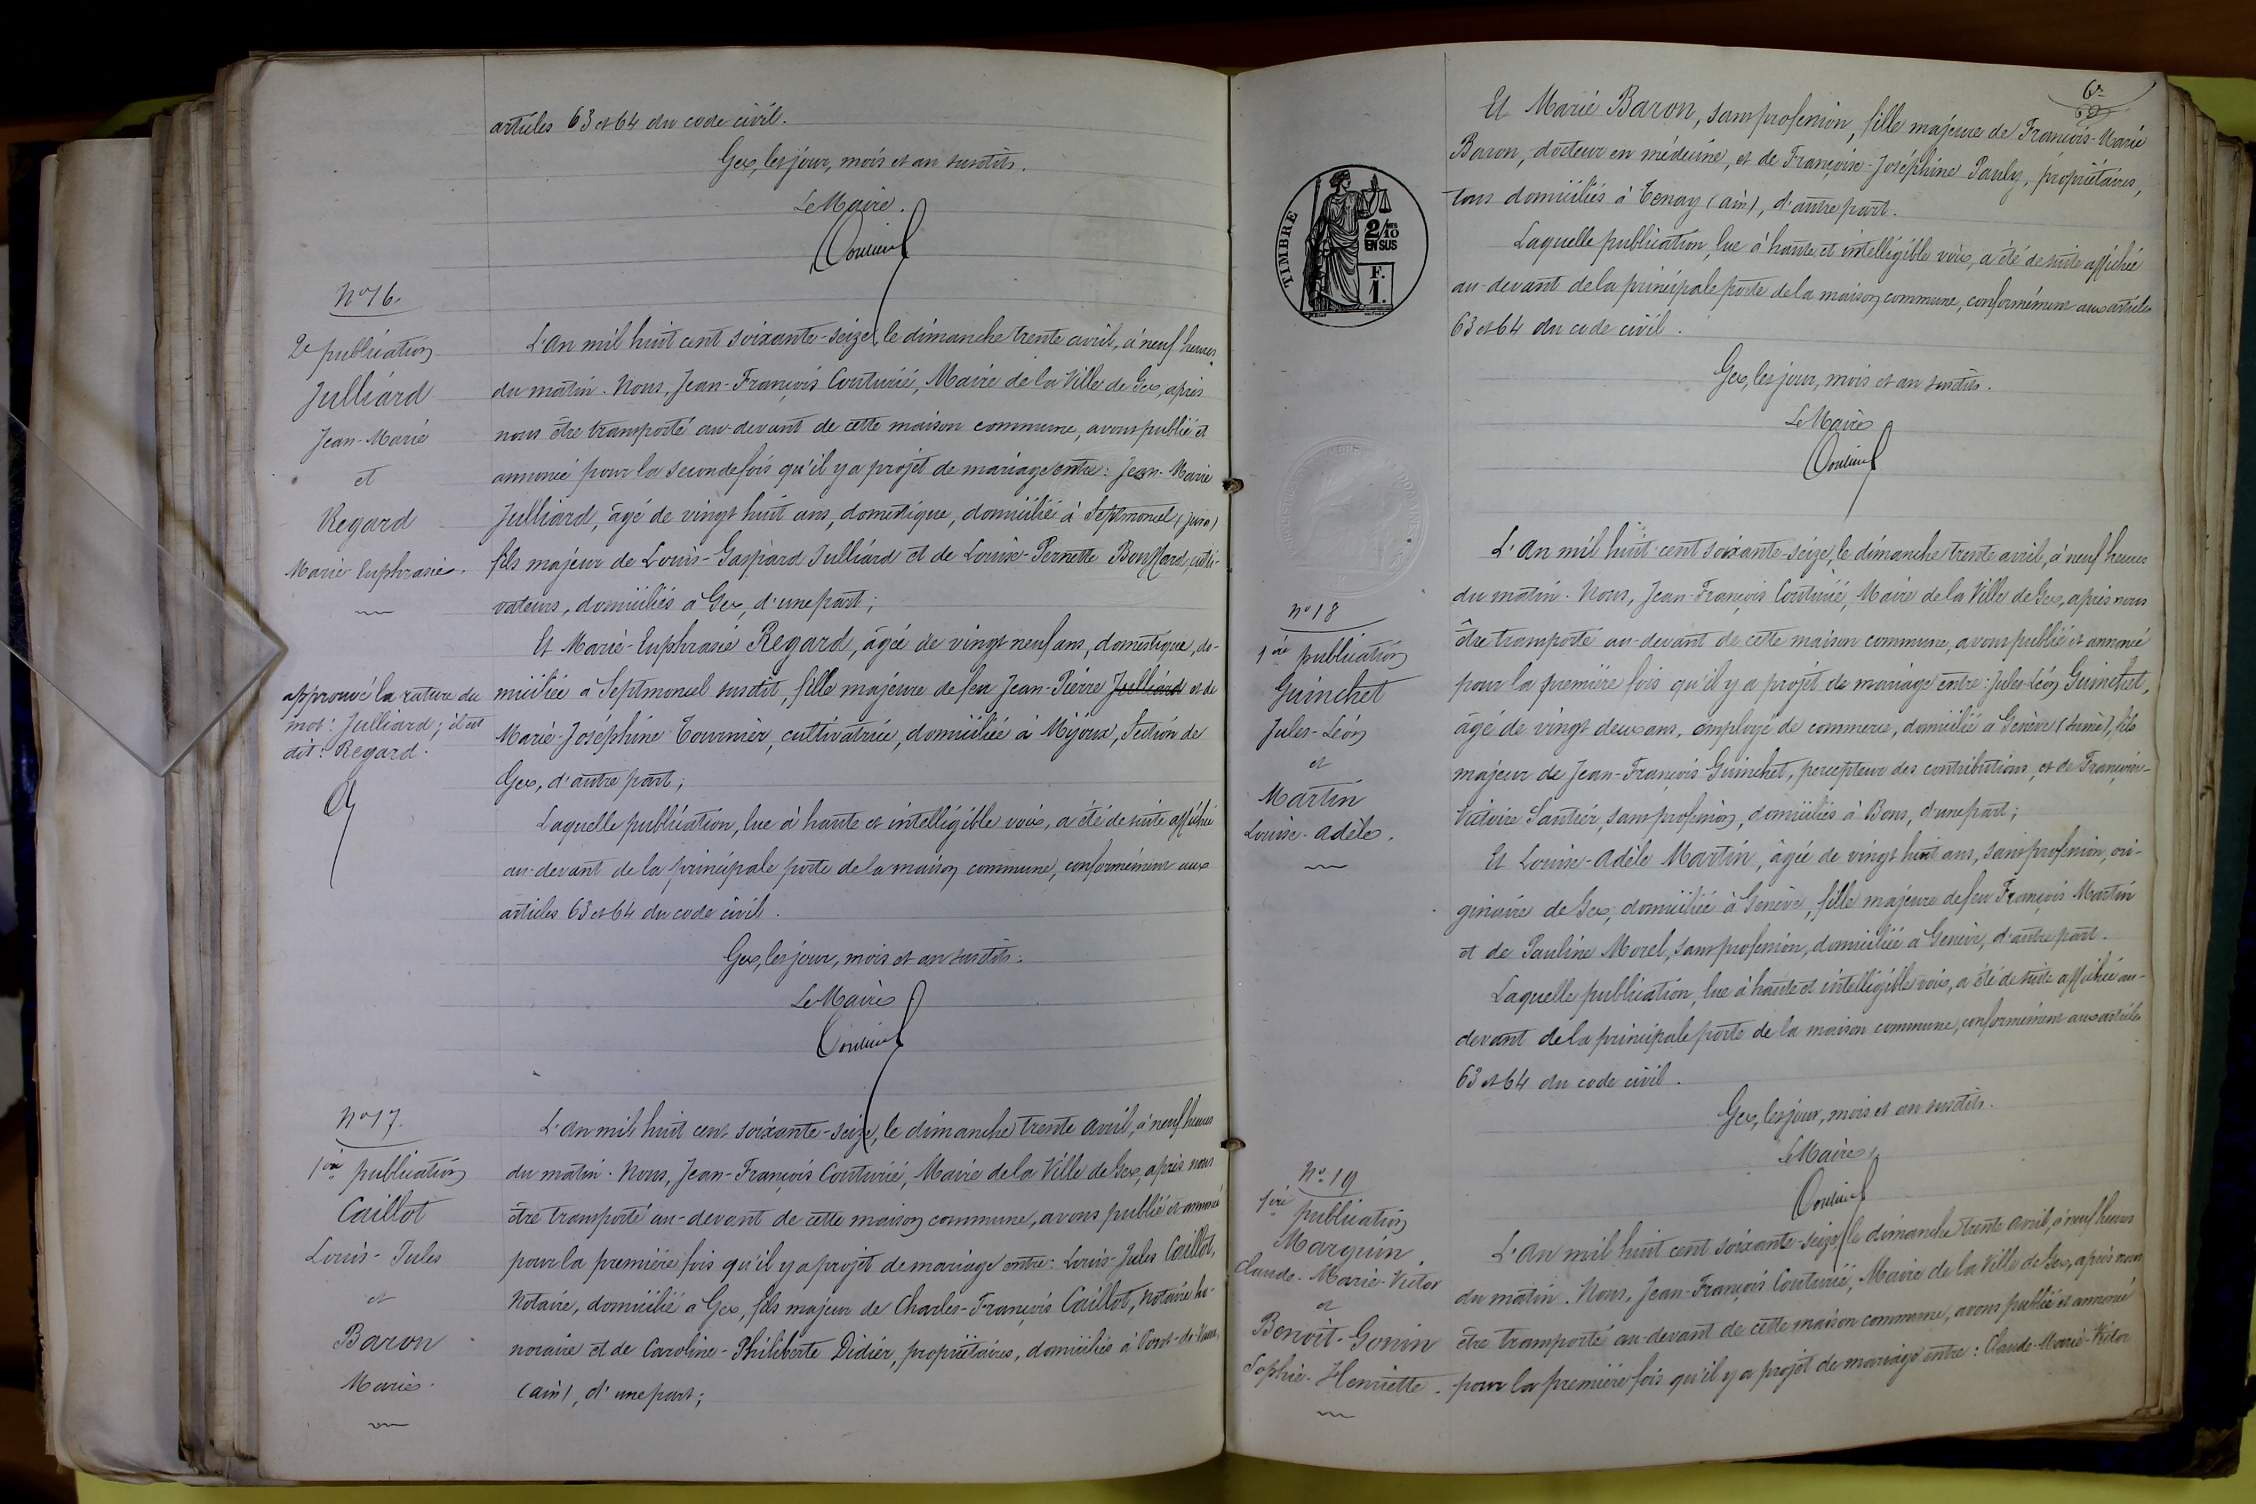 articles 63 et 64 du code civil.
Gex, les jour, mois et an susdits.
Le Maire.
Nº 16.
2e publication
Julliard
Jean-Marie
et
Regard
Marie Euphrasie.
L'an mil huit cent soixante-seize, le dimanche trente avril, à neuf heures
du matin. Nous, Jean-François Couturié, Maire de la Ville de Gex, après
nous être transporté au-devant de cette maison commune, avons publié et
annoncé pour la seconde fois qu'il y a projet de mariage entre: Jean-Marie
Julliard, âgé de vingt huit ans, domestique, domicilié à Septmoncel (Jura)
fils majeur de Louis-Gaspard Julliard et de Louise-Pernette Bouffard, culti-
vateurs, domiciliés à Gex, d'une part;
Et Marie-Euphrasie Regard, âgée de vingt neuf ans, domestique, do-
miciliée à Septmoncel susdit, fille majeure de feu Jean-Pierre Julliard et de
Marie-Joséphine Tournier, cultivatrice, domiciliée à Mijoux, Section de
Gex, d'autre part;
approuvé la rature du
mot: Julliard; il est
dit: Regard.
Laquelle publication, lue à haute et intelligible voix, a été de suite affichée
au-devant de la principale porte de la maison commune, conformément aux
articles 63 et 64 du code civil.
Gex, les jour, mois et an susdits.
Le Maire
Nº 17.
1ère publication
Caillot
Louis-Jules
et
Baron
Marie.
L'an mil huit cent soixante-seize, le dimanche trente avril, à neuf heures
du matin. Nous, Jean-François Couturié, Maire de la Ville de Gex, après nous
être transporté au-devant de cette maison commune, avons publié et annoncé
pour la première fois qu'il y a projet de mariage entre: Louis-Jules Caillot,
Notaire, domicilié à Gex, fils majeur de Charles-François Caillot, notaire ho-
noraire et de Caroline-Philiberte Didier, propriétaires, domiciliés à Pont-de-Vaux,
(ain), d'une part;
Et Marie Baron, sans profession, fille majeure de François-Marie
Baron, docteur en médecine, et de Françoise-Joséphine Pauly, propriétaires,
tous domiciliés à Tenay (ain), d'autre part.
TIMBRE
2/10
EN SUS
F.
1.
Laquelle publication, lue à haute et intelligible voix, a été de suite affichée
au-devant de la principale porte de la maison commune, conformément aux articles
63 et 64 du code civil.
Gex, les jour, mois et an susdits.
Le Maire
nº 18
1ère publication
Guinchet
Jules-Léon
et
Martin
Louise-Adèle.
L'An mil huit cent soixante-seize, le dimanche trente avril, à neuf heures
du matin. Nous, Jean-François Couturié, Maire de la Ville de Gex, après nous
être transporté au-devant de cette maison commune, avons publié et annoncé
pour la première fois qu'il y a projet de mariage entre: Jules-Léon Guinchet,
âgé de vingt deux ans, employé de commerce, domicilié à Genève (Suisse), fils
majeur de Jean-François Guinchet, percepteur des contributions, et de Françoise-
Victoire Santier, sans profession, domiciliés à Bons, d'une part;
Et Louise-Adèle Martin, âgée de vingt huit ans, sans profession, ori-
ginaire de Gex, domiciliée à Genève, fille majeure de feu François Martin
et de Pauline Morel, sans profession, domiciliée à Genève, d'autre part.
Laquelle publication, lue à haute et intelligible voix, a été de suite affichée au-
devant de la principale porte de la maison commune, conformément aux articles
63 et 64 du code civil.
Gex, les jour, mois et an susdits.
Le Maire
Nº 19
1ère publication
Marquin
Claude-Marie-Victor
et
Benoît-Gonin
Sophie-Henriette.
L'An mil huit cent soixante-seize, le dimanche trente avril, à neuf heures
du matin. Nous, Jean-François Couturié, Maire de la Ville de Gex, après nous
être transporté au-devant de cette maison commune, avons publié et annoncé
pour la première fois qu'il y a projet de mariage entre: Claude-Marie-Victor